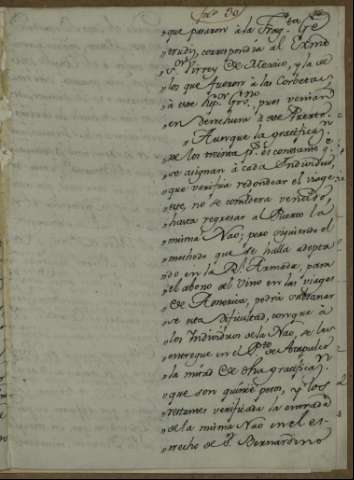 que pasaron à la Frag.ta Ge
trudiz, correspondia al Exmô
S.or Virrey de Mexico, y la de
los que fueron à las Corbetas
à este Sup.or Gov.no, pues venian
en derechura à este Puerto.
Aunque la gratificaz.n
de los treinta p.s es constante q.e
se asignan à cada Individuo,
que verifica redondear el viage
este, no se considera vencido,
hasta regresar al Puerto la
misma Nao; pero siguiendo el
methodo que se halla adopta
do en la R.l Armada, para
el abono del Vino en los viages
de America, podria subsanar
se esta dificultad, con que à
los Individuos de la Nao, se les
entregue en el P.to de Acapulco
la mitad de dha gratificaz.n
que son quince pesos, y los
restantes verificada la entrada
de la misma Nao en el es
trecho de S.n Bernardino